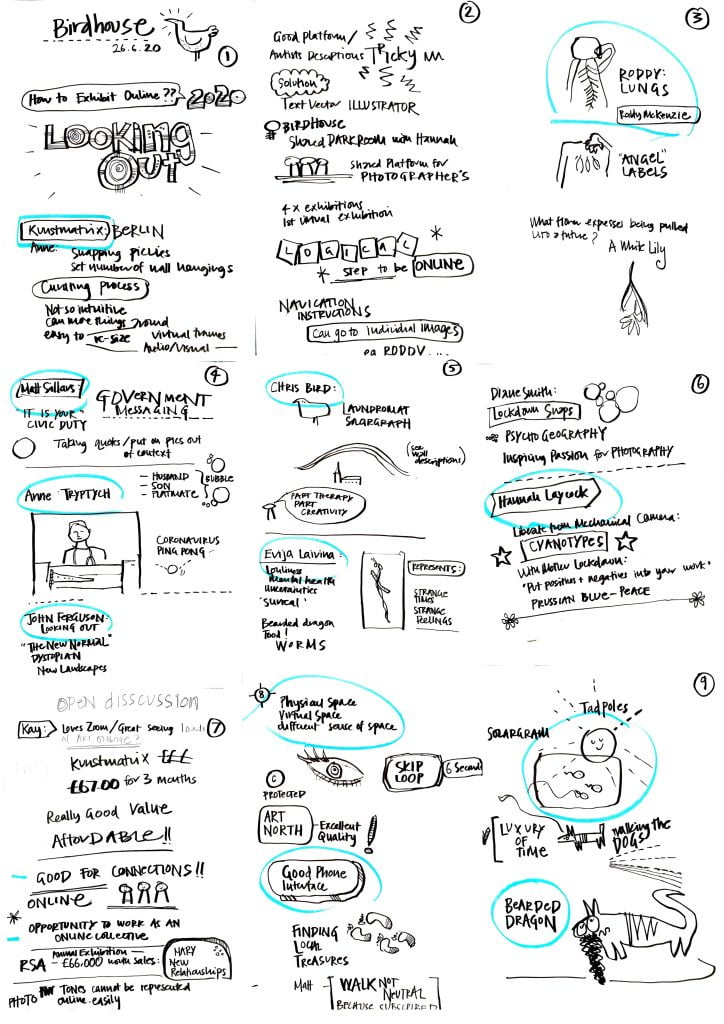 Birdhouse
26.6.20
1
How to Exhibit Online?? 2020
LOOKING
OUT
Kunstmatrix: BERLIN
Anne: Swapping pickies
Set number of wall hangings
Curating process
Not so intuitive
Can move things around
easy to re-size Virtual frames
Audio/Visual
2
Good Platform/
Artists Descriptions Tricky
Solution
Text Vector ILLUSTRATOR
BIRDHOUSE
Shared DARKROOM with Hannah
Shared Platform for
PHOTOGRAPHER'S
4 x exhibitions
1st virtual exhibition
LOGICAL
* STEP to be ONLINE *
NAVIGATION
INSTRUCTIONS
Can go to individual images
eg RODDY....
3
RODDY:
LUNGS
Roddy McKenzie
"ANGEL"
LABELS
What flower expresses being pulled
into a future?
A White Lily
4
Matt Sillars:
GOVERNMENT
MESSAGING
"IT IS YOUR"
CIVIC DUTY
Taking quotes/put on pics out
of context
Anne TRYPTYCH
- HUSBAND
- SON
- FLATMATE
BUBBLE
CORONAVIRUS
PING PONG
JOHN FERGUSON:
LOOKING OUT
"THE NEW NORMAL"
DYSTOPIAN
New Landscapes
5
CHRIS BIRD:
LAUNDROMAT
SOLARGRAPH
(see
wall
descriptions)
PART THERAPY
PART
CREATIVITY
Evija Laivina:
Lonliness
Mental health
Uncertainties
'Surreal'
Bearded dragon
Food!
WORMS
REPRESENTS:
STRANGE
TIMES
STRANGE
FEELINGS
6
Diane Smith:
Lockdown Snaps
PSYCHOGEOGRAPHY
Inspiring Passion for PHOTOGRAPHY
Hannah Laycock
Liberate from Mechanical Camera:
CYANOTYPES
With Mother Lockdown:
"Put positives + negatives into your work"
PRUSSIAN BLUE - PEACE
OPEN DISSCUSSION
7
Kay: Loves Zoom/Great seeing loads
of ART ONLINE?
Kunstmatrix £££
£67.00 for 3 months
Really Good Value
AFFORDABLE!!
GOOD FOR CONNECTIONS!!
ONLINE
* OPPORTUNITY TO WORK AS AN
ONLINE COLLECTIVE
RSA - Annual Exhibition
£66,000 worth sales:
MARY
New
Relationships
PHOTO TONES cannot be represented
online easily
8
Physical Space
Virtual Space
different sense of space
SKIP
LOOP
6 Second
C
PROTECTED
ART
NORTH
- Excellent
Quality!
Good Phone
Interface
FINDING
LOCAL
TREASURES
Matt - WALK NOT
NEUTRAL
BECAUSE SUBSCRIBED
9
Tadpoles
SOLARGRAM
LUXURY
OF
TIME
walking the
DOGS
BEARDED
DRAGON